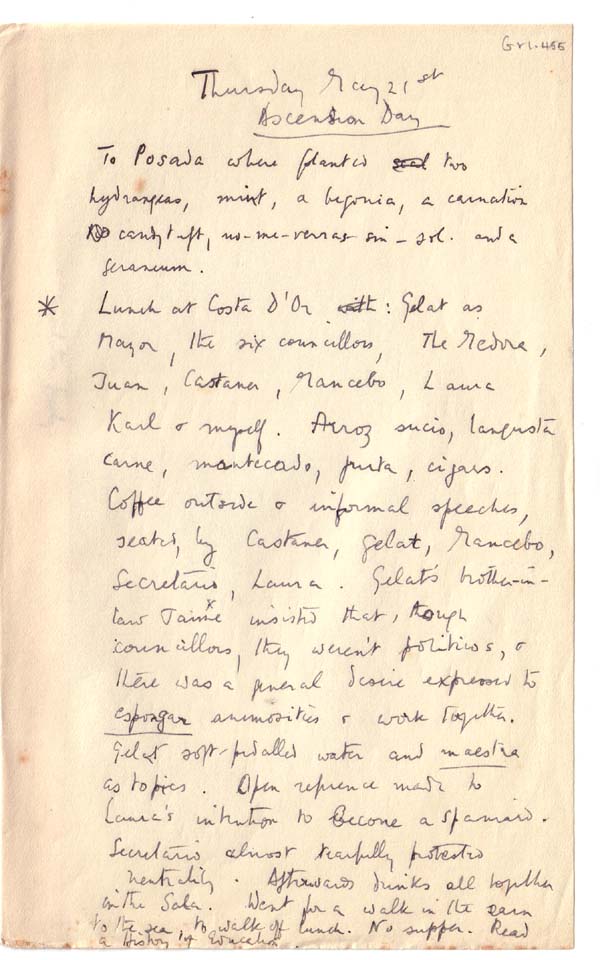 GrI.455
Thursday May 21st
Ascension Day
To Posada where planted two
hydrangeas, mint, a begonia, a carnation
candytuft, no-me-verras-sin-sol. and a
geraneum.
* Lunch at Costa D'Or with: Gelat as
Mayor, the six councillors, The Medora,
Juan, Castaner, Mancebo, Laura
Karl & myself. Arroz sucio, langusta
carne, mantecado, fruta, cigars.
Coffee outside & informal speeches,
seated, by Castaner, Gelat, Mancebo,
Secretario, Laura. Gelat's brother-in-
law Jaime x insisted that, though
councillors, they weren't politicos, &
there was a general desire expressed to
espongar animosities & work together.
Gelat soft-pedalled water and maestra
as topics. Open reference made to
Laura's intention to become a Spaniard.
Secretario almost tearfully protested
neutrality. Afterwards drinks all together
in the Sala. Went for a walk in the rain
to the sea, to walk off lunch. No supper. Read
a History of Education.